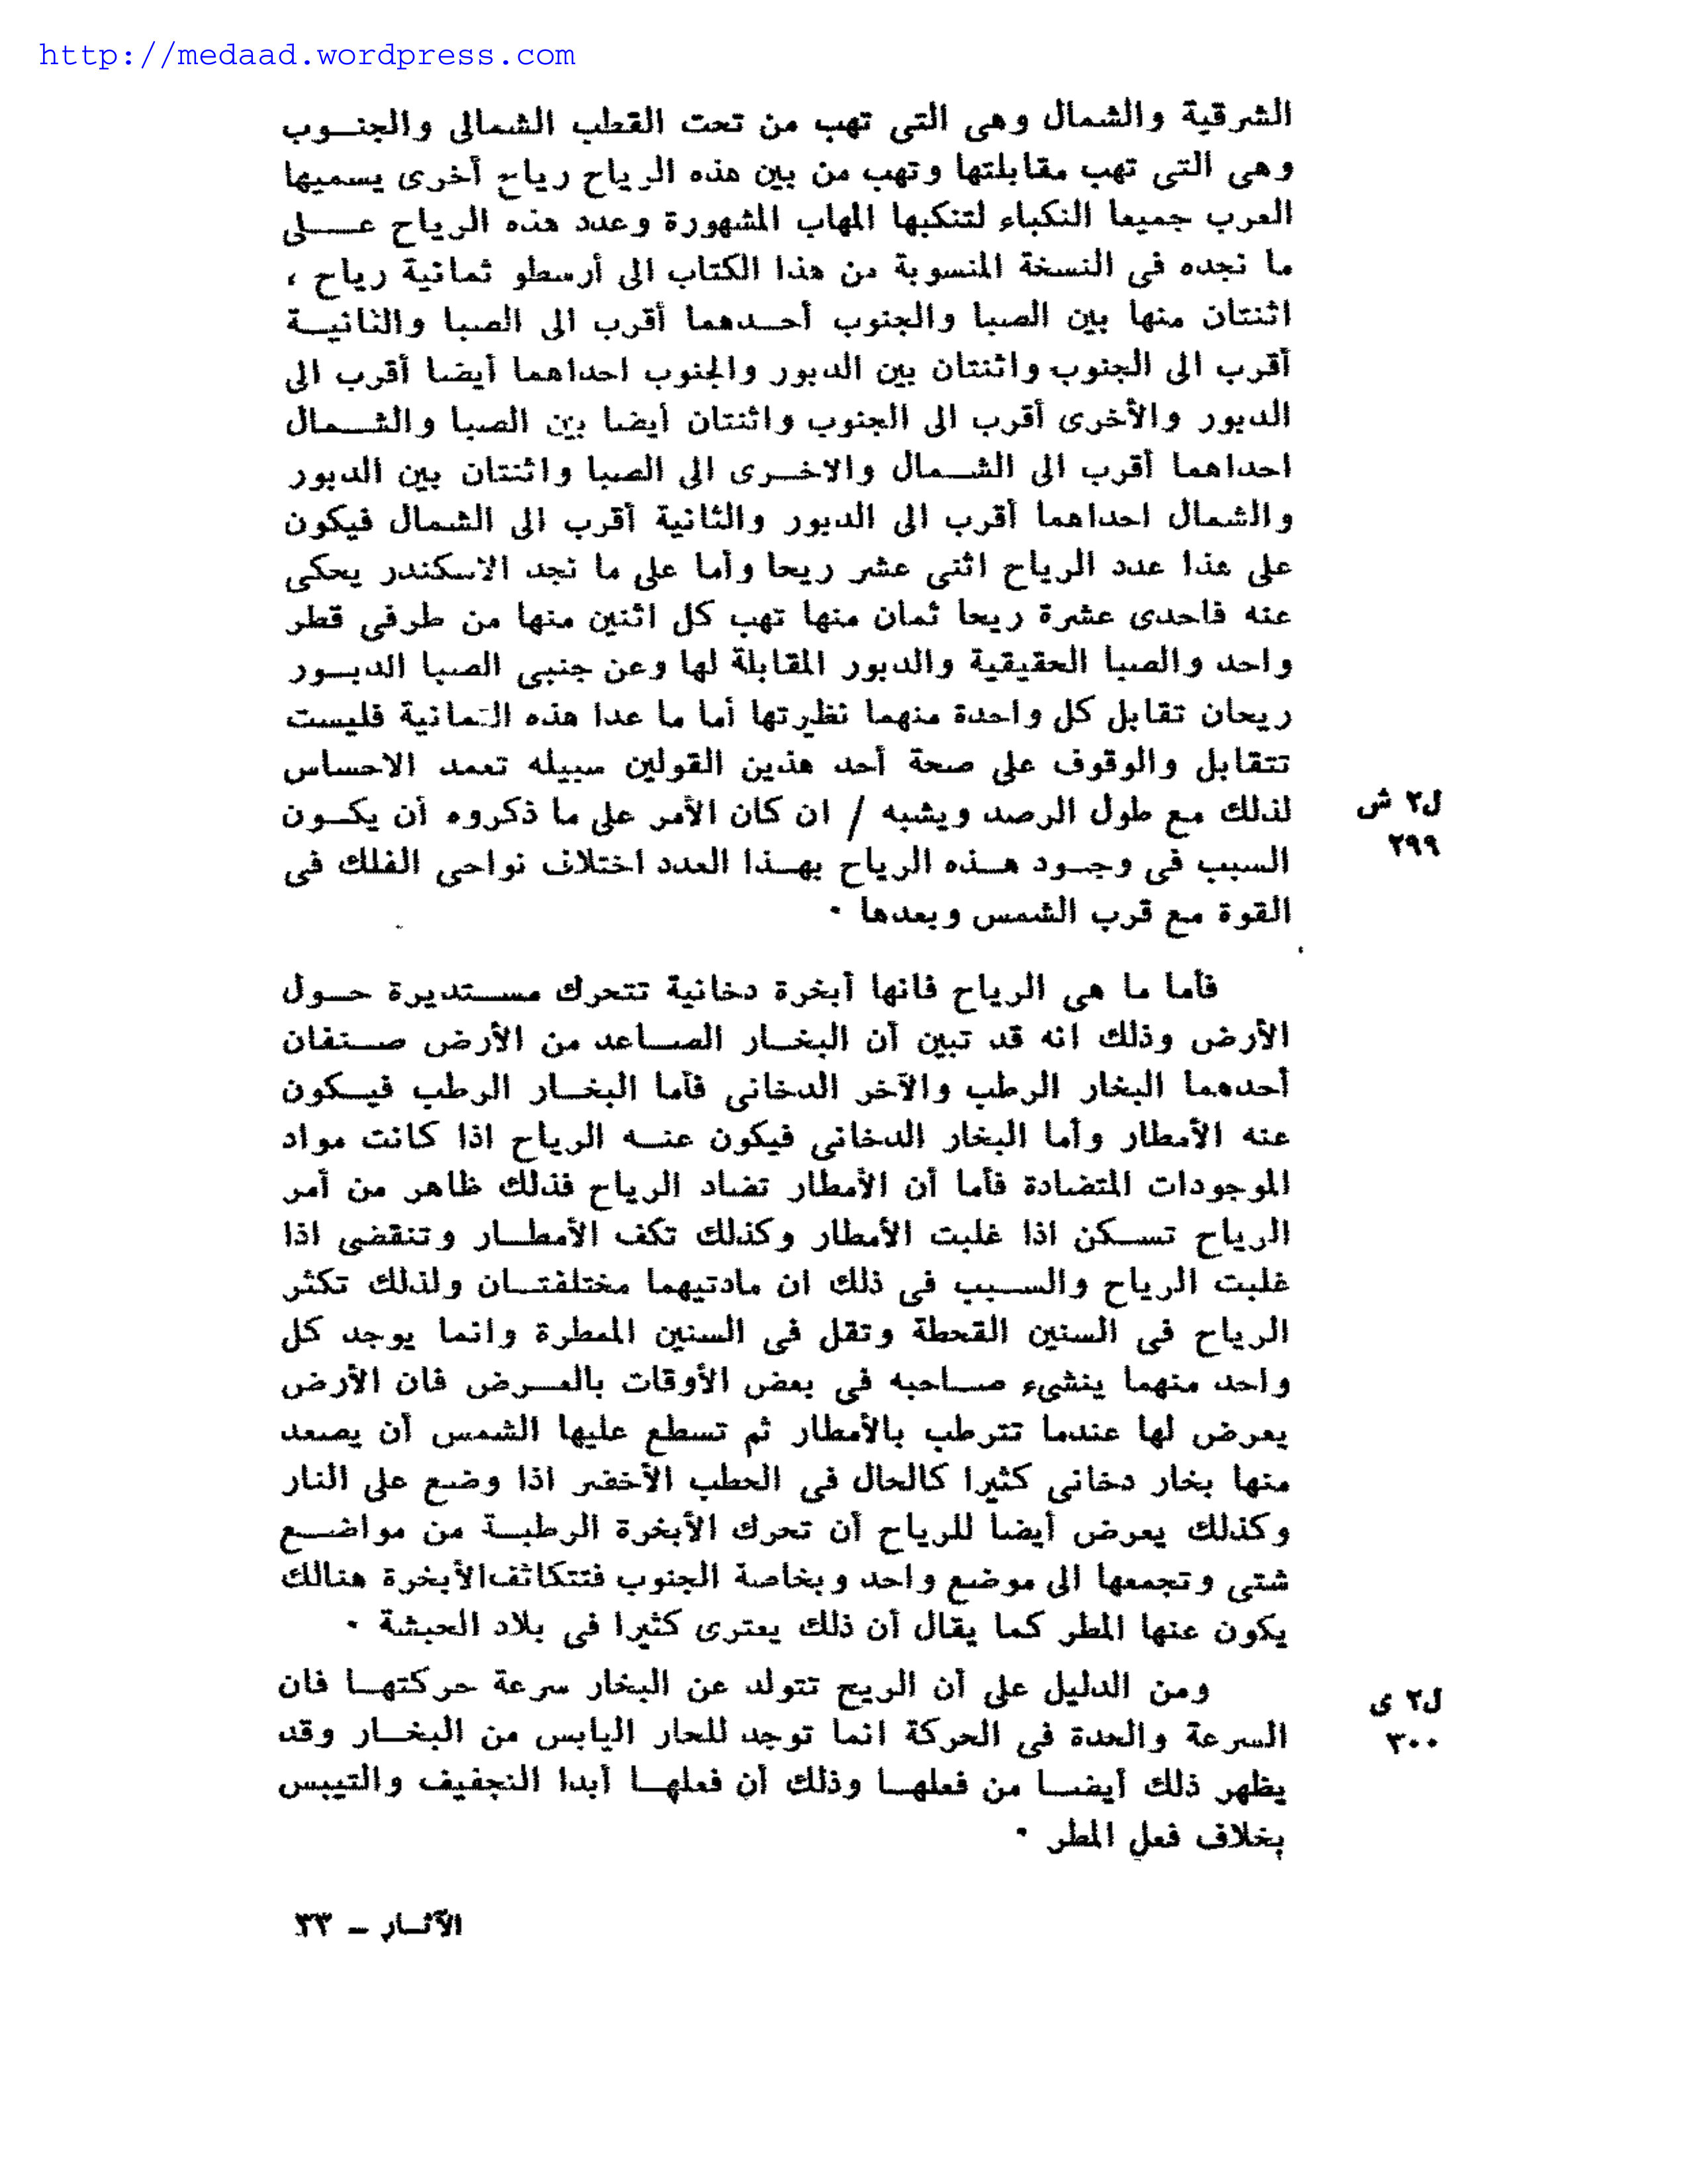 http://medaad.wordpress.com
الشرقية والشمال وهى التى تهب من تحت القطب الشمالى والجنوب
وهى التى تهب مقابلتها وتهب من بين هذه الرياح رياح أخرى يسميها
العرب جميعا النكباء لتنكبها المهاب المشهورة وعدد هذه الرياح على
ما نجده فى النسخة المنسوبة من هذا الكتاب الى أرسطو ثمانية رياح ،
اثنتان منها بين الصبا والجنوب أحدهما أقرب الى الصبا والثانية
أقرب الى الجنوب واثنتان بين الدبور والجنوب احداهما أيضا أقرب الى
الدبور والأخرى أقرب الى الجنوب واثنتان أيضا بين الصبا والشمال
احداهما أقرب الى الشمال والاخرى الى الصبا واثنتان بين الدبور
والشمال احداهما أقرب الى الدبور والثانية أقرب الى الشمال فيكون
على هذا عدد الرياح اثنى عشر ريحا وأما على ما نجد الاسكندر يحكى
عنه فاحدى عشرة ريحا ثمان منها تهب كل اثنين منها من طرفى قطر
واحد والصبا الحقيقية والدبور المقابلة لها وعن جنبى الصبا الدبور
ريحان تقابل كل واحدة منهما نظيرتها أما ما عدا هذه الثمانية فليست
تتقابل والوقوف على صحة أحد هذين القولين سبيله تعمد الاحساس
لذلك مع طول الرصد ويشبه / ان كان الأمر على ما ذكروه أن يكون
ل٢ ش
٢٩٩
السبب فى وجود هذه الرياح بهذا العدد اختلاف نواحى الفلك فى
القوة مع قرب الشمس وبعدها ٠
فأما ما هى الرياح فانها أبخرة دخانية تتحرك مستديرة حول
الأرض وذلك انه قد تبين أن البخار الصاعد من الأرض صنفان
أحدهما البخار الرطب والآخر الدخانى فأما البخار الرطب فيكون
عنه الأمطار وأما البخار الدخانى فيكون عنه الرياح اذا كانت مواد
الموجودات المتضادة فأما أن الأمطار تضاد الرياح فذلك ظاهر من أمر
الرياح تسكن اذا غلبت الأمطار وكذلك تكف الأمطار وتنقضى اذا
غلبت الرياح والسبب فى ذلك ان مادتيهما مختلفتان ولذلك تكثر
الرياح فى السنين القحطة وتقل فى السنين الممطرة وانما يوجد كل
واحد منهما ينشىء صاحبه فى بعض الأوقات بالعرض فان الأرض
يعرض لها عندما تترطب بالأمطار ثم تسطع عليها الشمس أن يصعد
منها بخار دخانى كثيرا كالحال فى الحطب الأخضر اذا وضع على النار
وكذلك يعرض أيضا للرياح أن تحرك الأبخرة الرطبة من مواضع
شتى وتجمعها الى موضع واحد وبخاصة الجنوب فتتكاثف الأبخرة هنالك
يكون عنها المطر كما يقال أن ذلك يعترى كثيرا فى بلاد الحبشة ٠
ومن الدليل على أن الريح تتولد عن البخار سرعة حركتها فان
ل٢ ى
٣٠٠
السرعة والحدة فى الحركة انما توجد للحار اليابس من البخار وقد
يظهر ذلك أيضا من فعلها وذلك أن فعلها أبدا التجفيف والتيبس
بخلاف فعل المطر ٠
الآثار – ٣٣